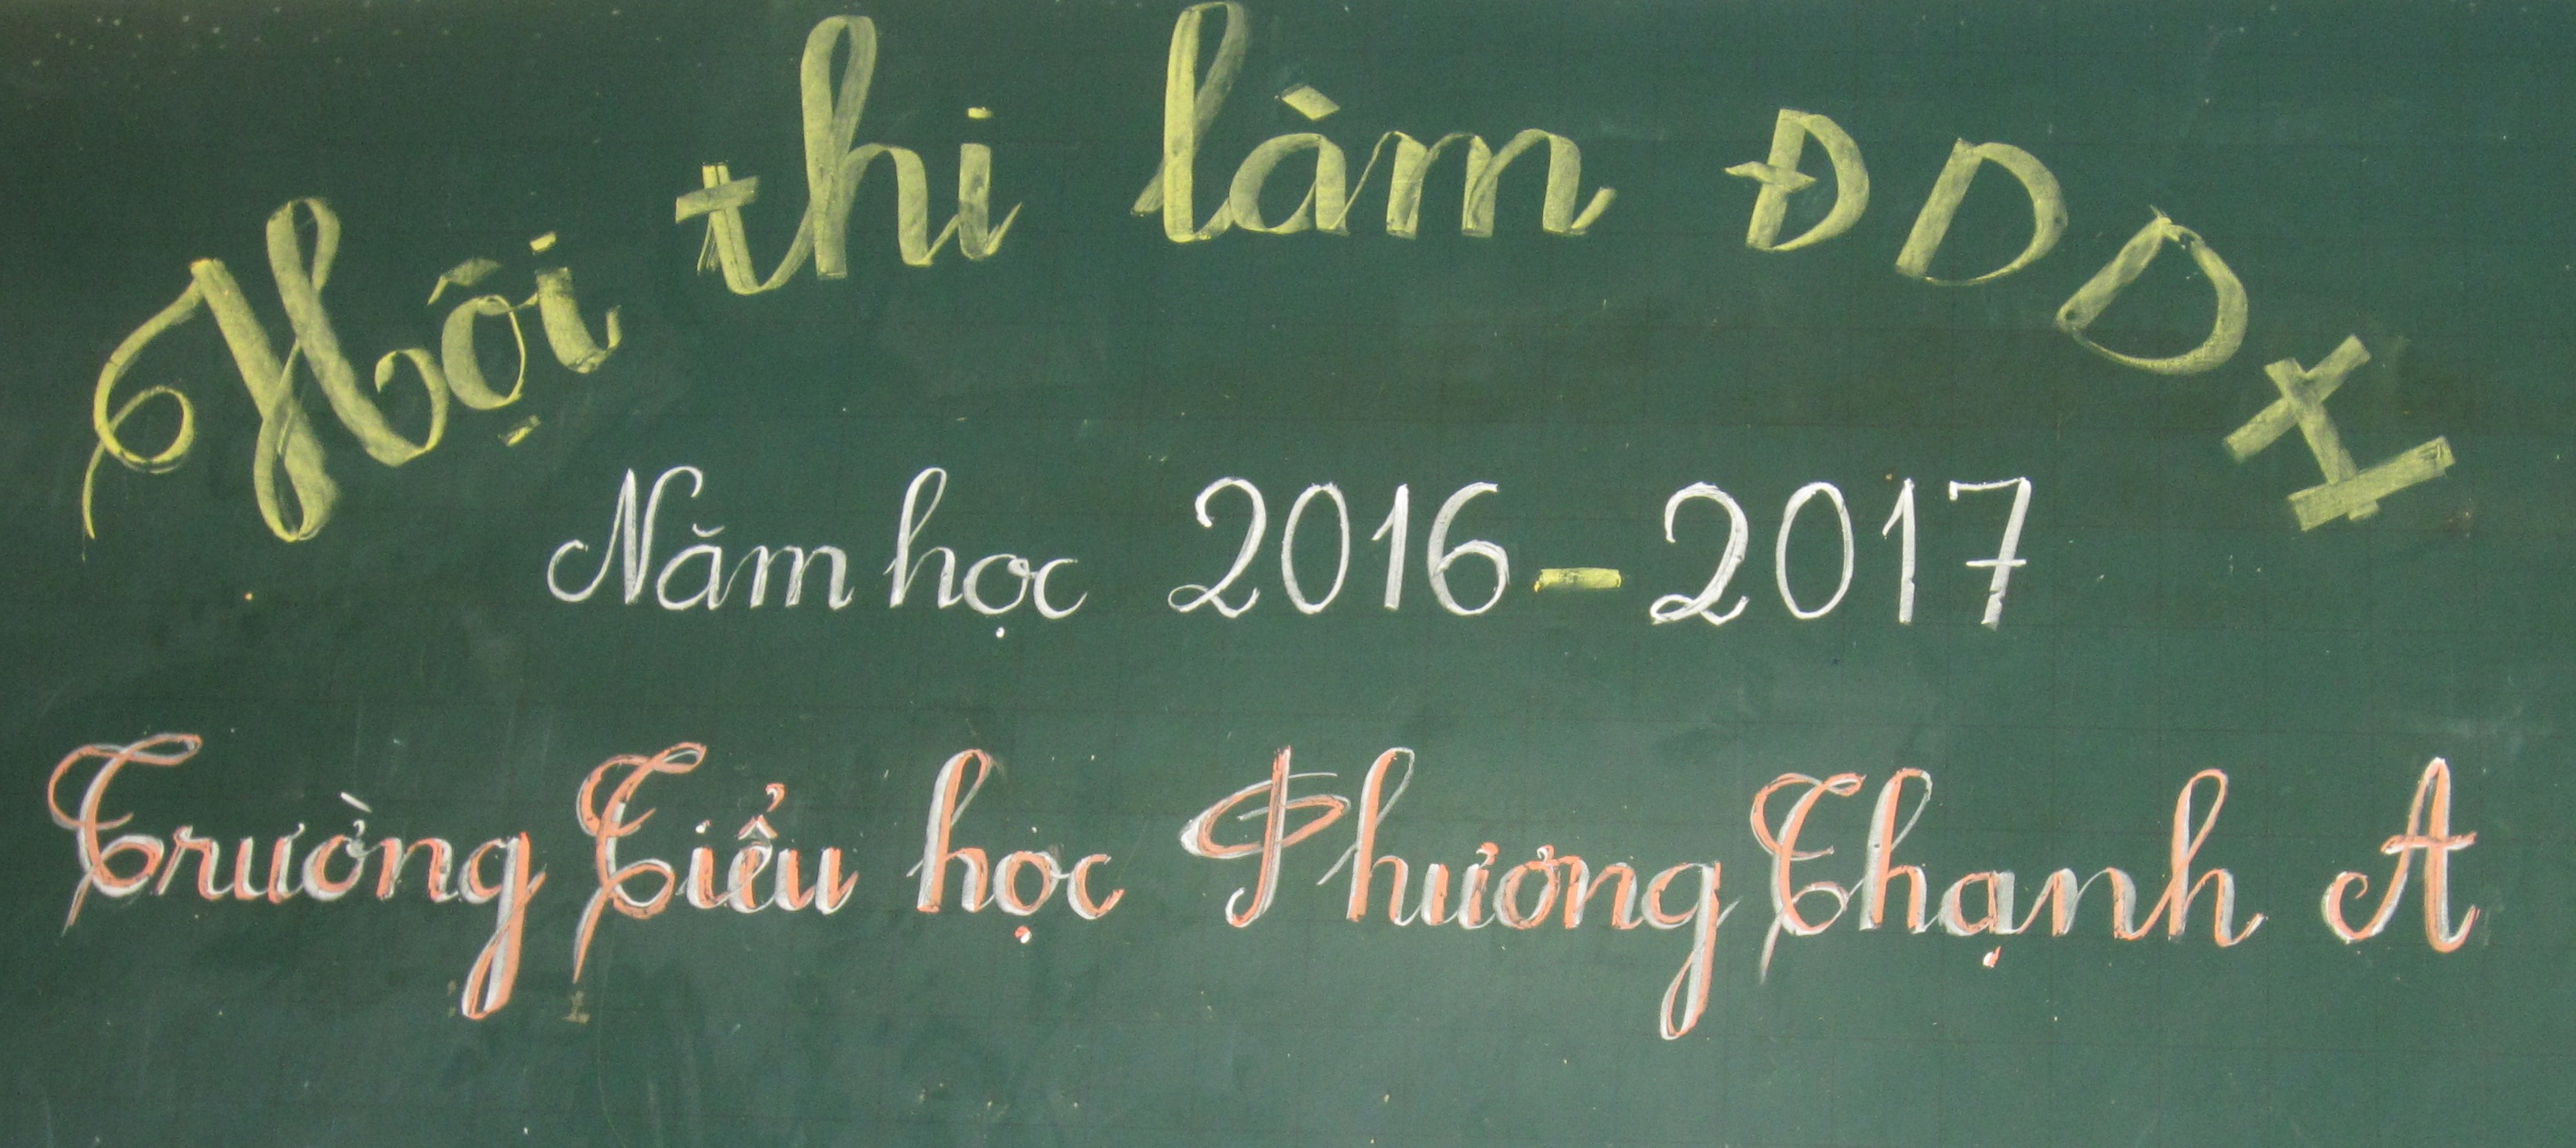 Hội thi làm ĐDDH
Năm học 2016-2017
Trường Tiểu học Phương Thạnh A